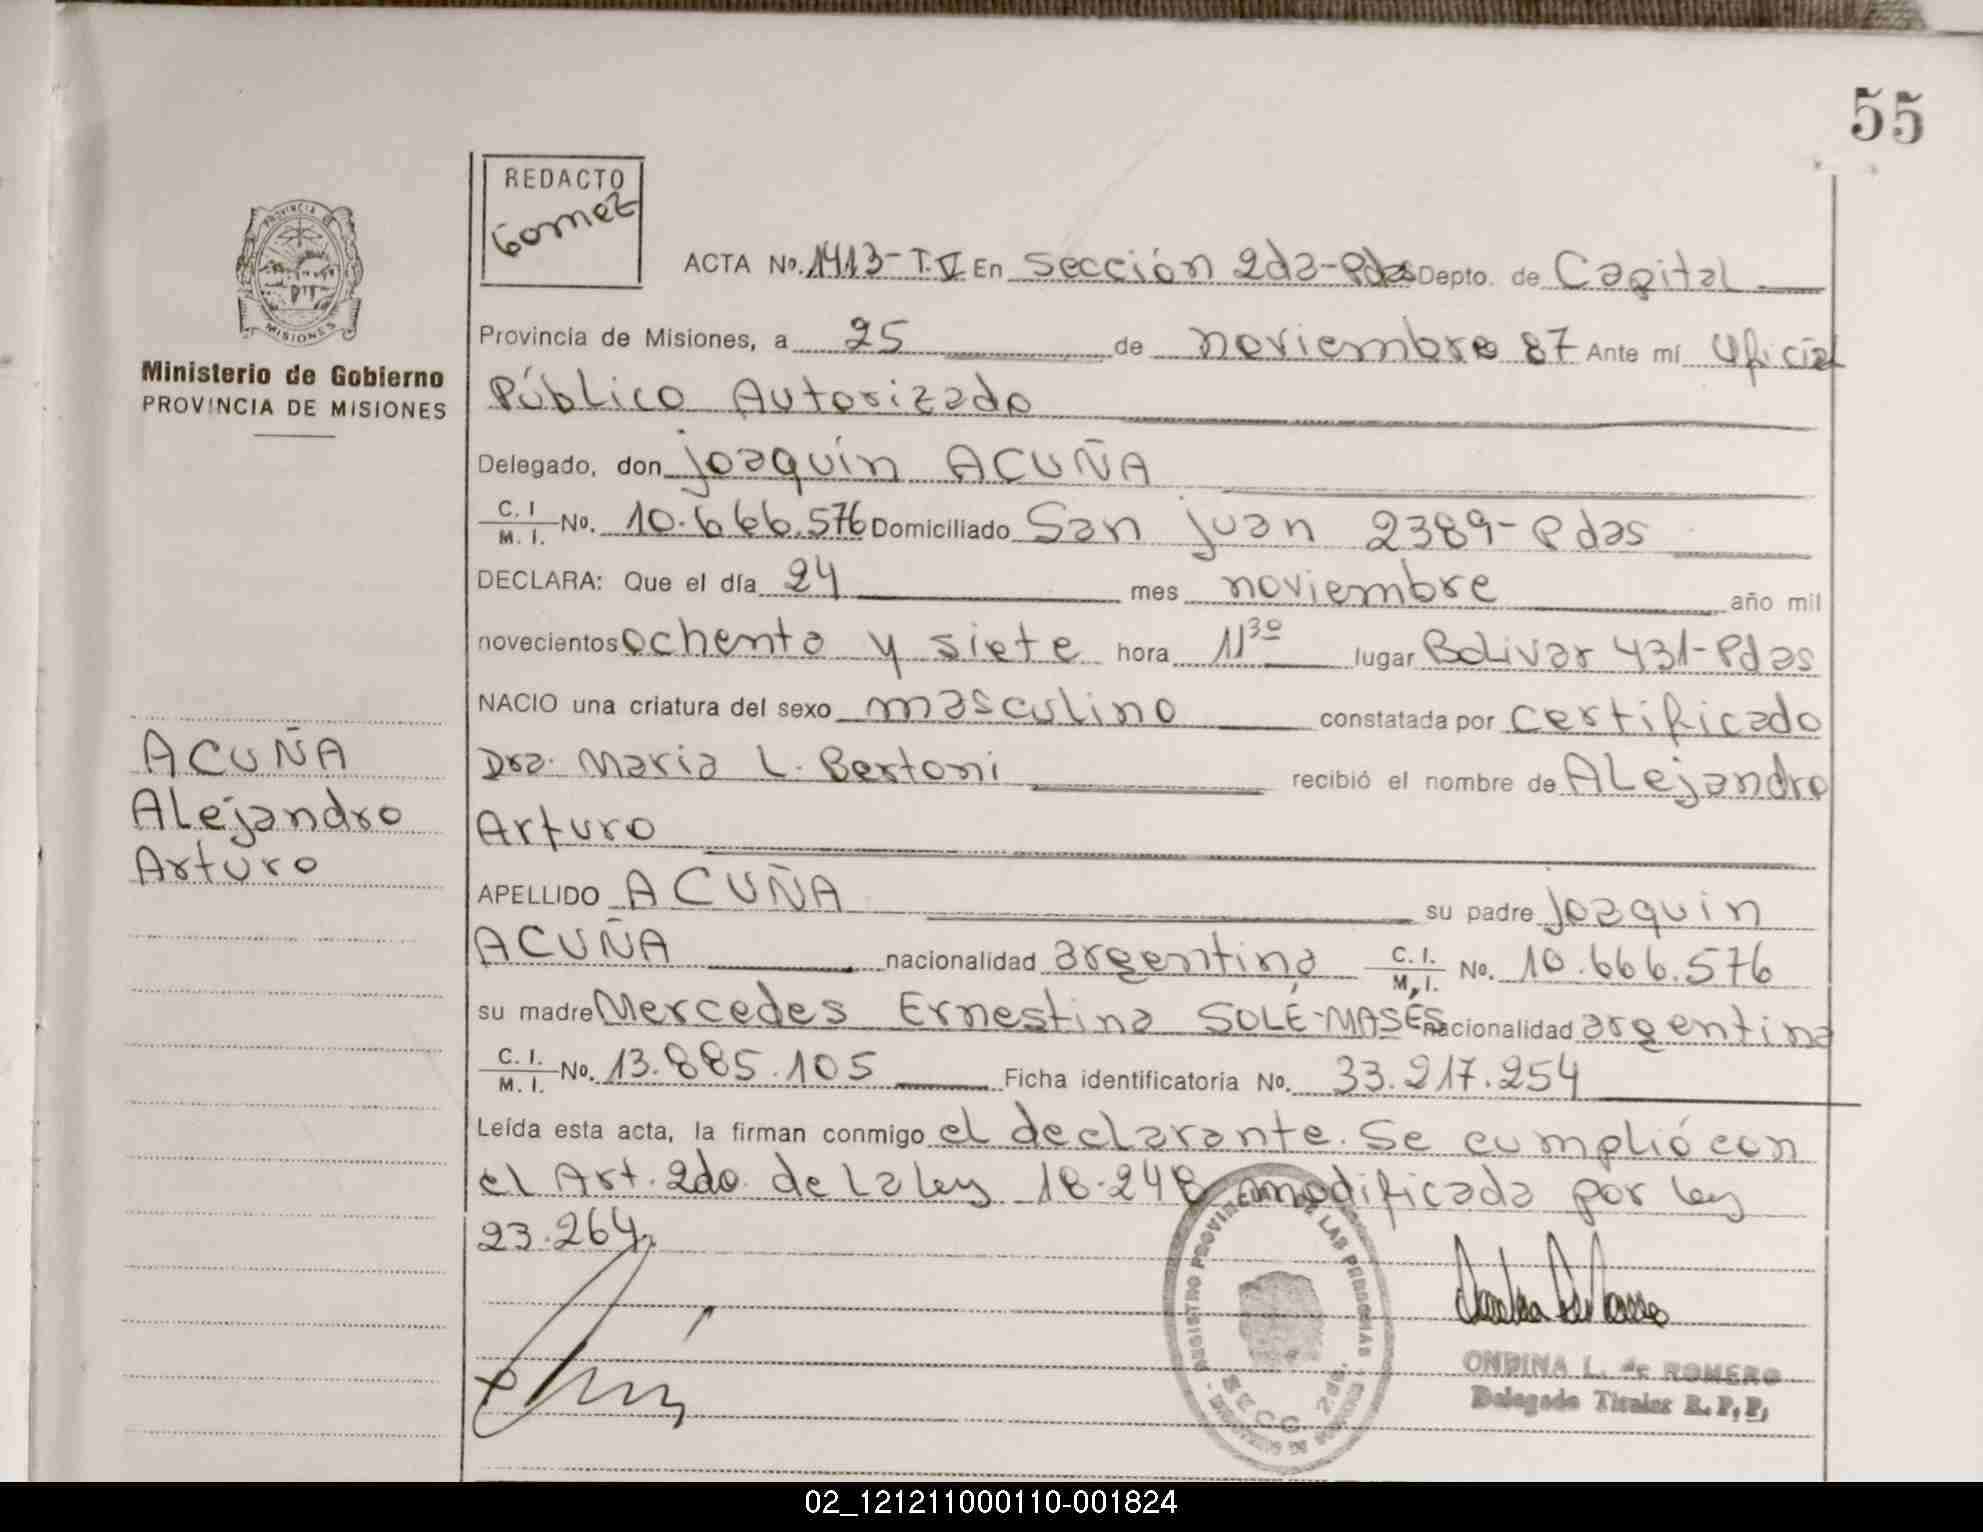 55
REDACTO
Gomez
PROVINCIA DE
MISIONES
Ministerio de Gobierno
PROVINCIA DE MISIONES
ACTA No. 1413-T.V En Sección 2da-Pdas Depto. de Capital
Provincia de Misiones, a 25 de noviembre 87 Ante mí Oficial
Público Autorizado
Delegado, don Joaquín ACUÑA
C. I. / M. I. No. 10.666.576 Domiciliado San Juan 2389-Pdas
DECLARA: Que el día 24 mes noviembre año mil
novecientos ochenta y siete hora 11³⁰ lugar Bolivar 431-Pdas
NACIO una criatura del sexo masculino constatada por certificado
Dra. Maria L. Bertoni recibió el nombre de Alejandro
Arturo
APELLIDO ACUÑA su padre Joaquín
ACUÑA nacionalidad argentina C. I. / M. I. No. 10.666.576
su madre Mercedes Ernestina SOLÉ-MASÉS nacionalidad argentina
C. I. / M. I. No. 13.885.105 Ficha identificatoria No. 33.217.254
Leída esta acta, la firman conmigo el declarante. Se cumplió con
el Art. 2do. de La Ley 18.248 modificada por Ley
23.264.
ACUÑA
Alejandro
Arturo
REGISTRO PROVINCIAL DE LAS PERSONAS
SECC. 2da.
ONDINA L. de ROMERO
Delegada Titular R. P. P.
02_121211000110-001824